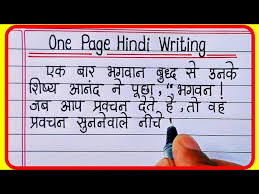 One Page Hindi Writing
एक बार भगवान बुध्द से उनके
शिष्य आनंद ने पूछा, "भगवन!
जब आप प्रवचन देते है, तो वहं
प्रवचन सुननेवाले नीचे